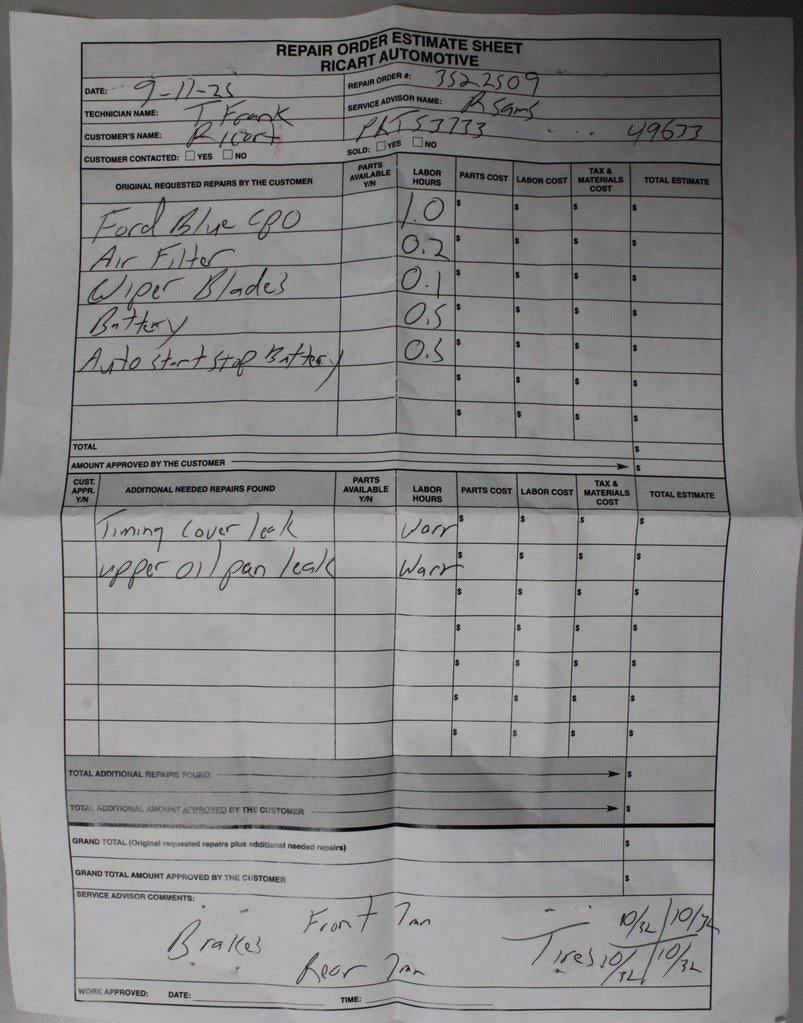 REPAIR ORDER ESTIMATE SHEET
RICART AUTOMOTIVE
DATE: 9-17-25 REPAIR ORDER #: 3522509
TECHNICIAN NAME: T. Frank SERVICE ADVISOR NAME: R Sams
CUSTOMER'S NAME: Ricart PKT53733 49673
CUSTOMER CONTACTED: YES NO SOLD: YES NO
ORIGINAL REQUESTED REPAIRS BY THE CUSTOMER PARTS AVAILABLE Y/N LABOR HOURS PARTS COST LABOR COST TAX & MATERIALS COST TOTAL ESTIMATE
Ford Blue CPO 1.0 $ $ $ $
Air Filter 0.2 $ $ $ $
Wiper Blades 0.1 $ $ $ $
Battery 0.5 $ $ $ $
Auto Start Stop Battery 0.5 $ $ $ $
$ $ $ $
$ $ $ $
TOTAL $
AMOUNT APPROVED BY THE CUSTOMER $
CUST. APPR. Y/N ADDITIONAL NEEDED REPAIRS FOUND PARTS AVAILABLE Y/N LABOR HOURS PARTS COST LABOR COST TAX & MATERIALS COST TOTAL ESTIMATE
Timing Cover leak Warr $ $ $ $
upper oil pan leak Warr $ $ $ $
$ $ $ $
$ $ $ $
$ $ $ $
$ $ $ $
$ $ $ $
TOTAL ADDITIONAL REPAIRS FOUND $
TOTAL ADDITIONAL AMOUNT APPROVED BY THE CUSTOMER $
GRAND TOTAL (Original requested repairs plus additional needed repairs) $
GRAND TOTAL AMOUNT APPROVED BY THE CUSTOMER $
SERVICE ADVISOR COMMENTS:
Brakes Front 7mm Tires 10/32 10/32
Rear 7mm 10/32 10/32
WORK APPROVED: DATE: TIME: